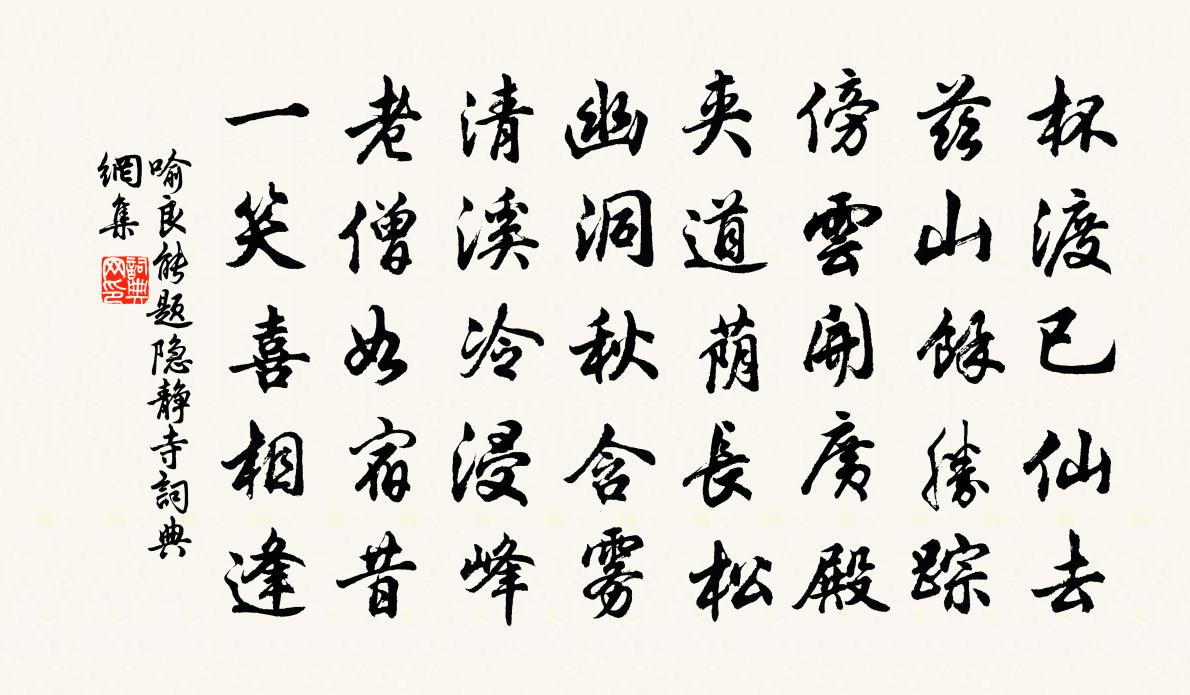 杯渡已仙去
茲山餘勝踪
傍雲開廣殿
夾道荫長松
幽洞秋含雾
清溪冷浸峰
老僧如宿昔
一笑喜相逢
喻良能题隐静寺詞典
網集
詞典
网印